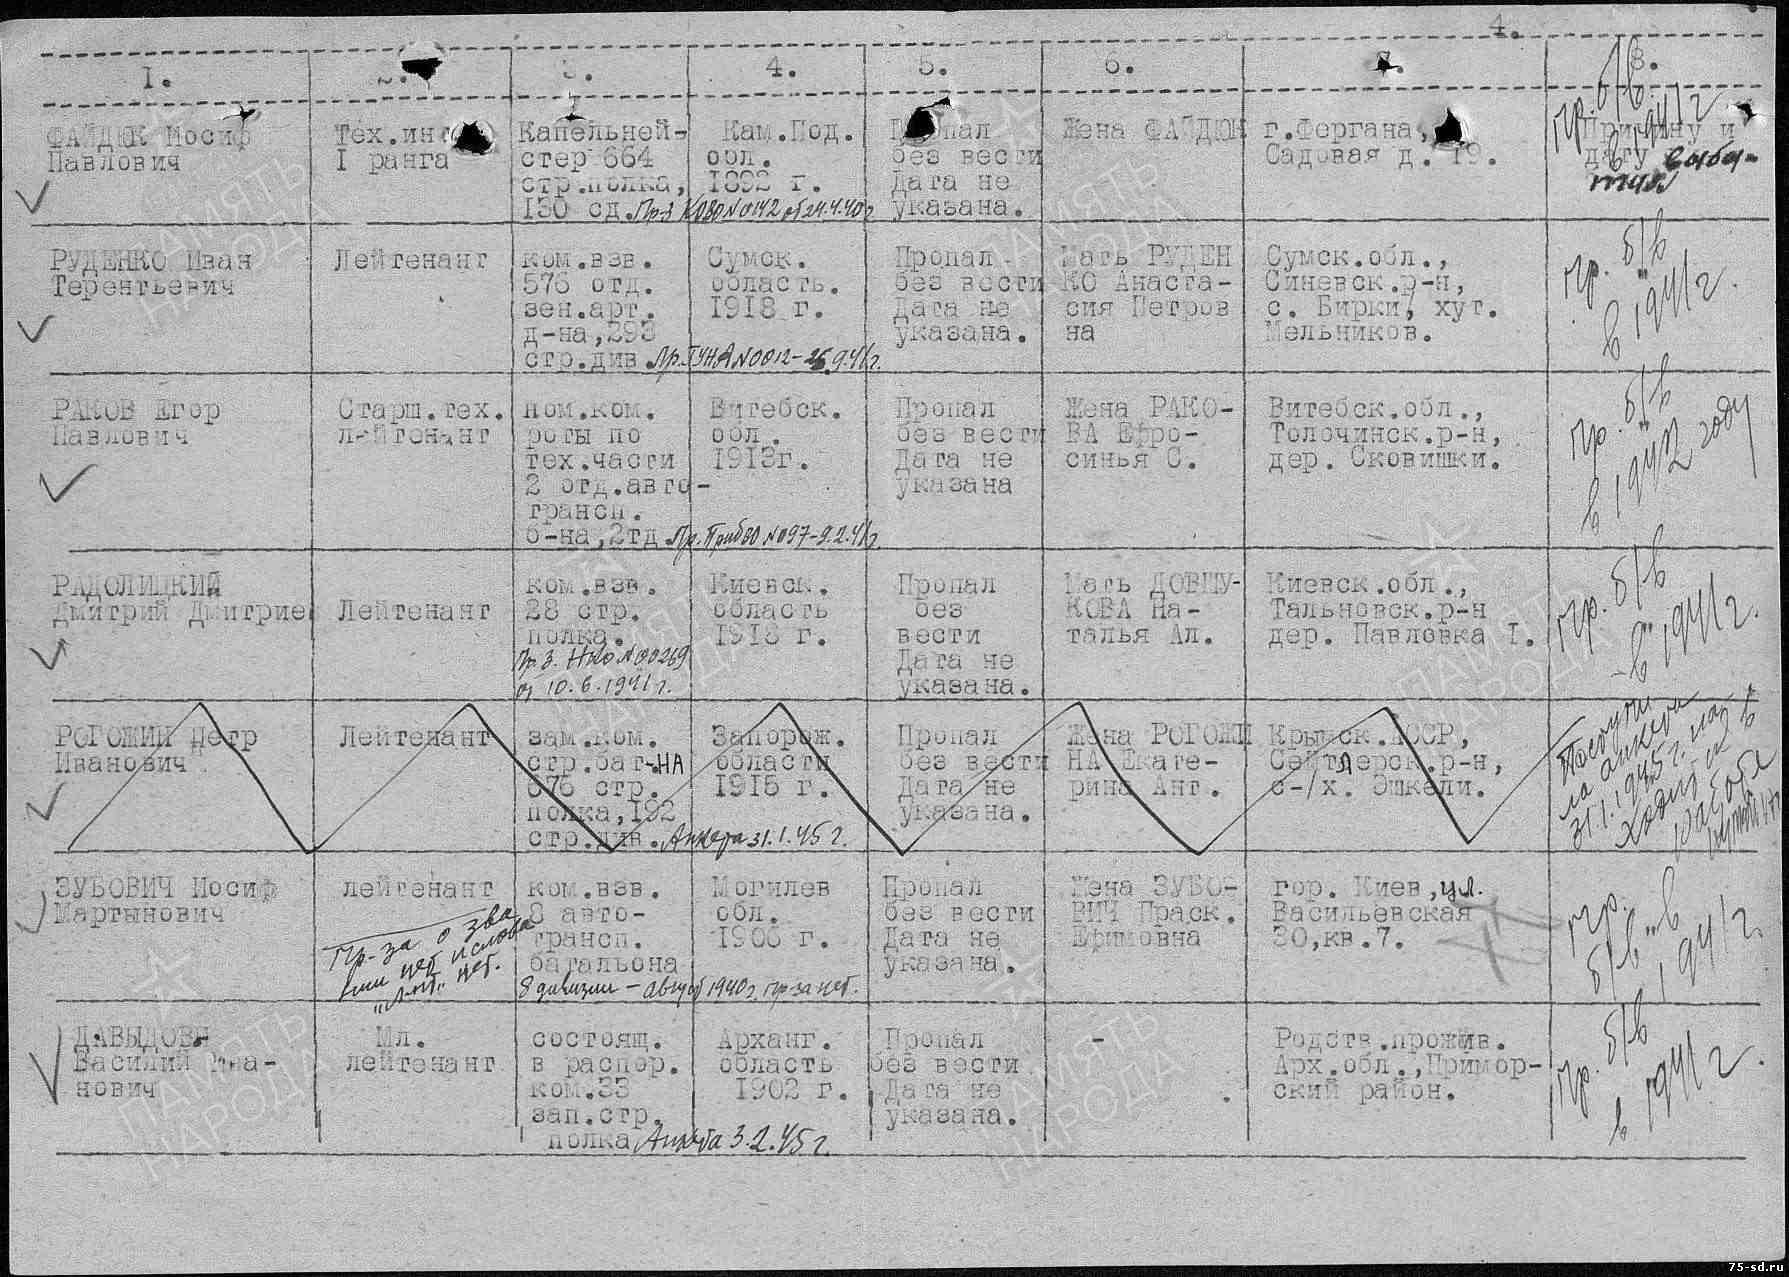 4.
1. 2. 3. 4. 5. 6. 7. 8.
ФАЙДЮК Иосиф
Павлович
Тех.инт
I ранга
Капельмей-
стер 664
стр.полка,
130 сд. Пр-з КОВО №0142 от 24.4.40г
Кам.Под.
обл.
1892 г.
Пропал
без вести
Дата не
указана.
Жена ФАЙДЮК
г.Фергана,
Садовая д. 19.
Причину и
дату выбы-
тия
Пр. б/в
в 1941г
РУДЕНКО Иван
Терентьевич
Лейтенант
ком.взв.
576 отд.
зен.арт.
д-на,293
стр.див. Пр.ГУНА №0012-26.9.41г.
Сумск.
область.
1918 г.
Пропал
без вести
Дата не
указана.
Мать РУДЕН
КО Анаста-
сия Петров
на
Сумск.обл.,
Синевск.р-н,
с. Бирки, хут.
Мельников.
Пр. б/в
в 1941г.
РАКОВ Егор
Павлович
Старш.тех.
лейтенант
пом.ком.
роты по
тех.части
2 отд.авто-
трансп.
б-на,2тд Пр.ПрибВО №097-9.2.41г.
Витебск.
обл.
1913г.
Пропал
без вести
Дата не
указана
Жена РАКО-
ВА Ефро-
синья С.
Витебск.обл.,
Толочинск.р-н,
дер. Сковишки.
Пр. б/в
в 1942 году
РАДОЛИЦКИЙ
Дмитрий Дмитрие
Лейтенант
ком.взв.
28 стр.
полка.
Пр.З. НКО №00269
от 10.6.1941г.
Киевск.
область
1918 г.
Пропал
без
вести
Дата не
указана.
Мать ДОВШУ-
КОВА На-
талья Ал.
Киевск.обл.,
Тальновск.р-н
дер. Павловка I.
Пр. б/в
в 1941г.
РОГОЖИН Петр
Иванович
Лейтенант
зам.ком.
стр.бат-НА
676 стр.
полка,192
стр.див. Анкета 31.1.45г.
Запорож.
области
1915 г.
Пропал
без вести
Дата не
указана.
Жена РОГОЖИ
НА Екате-
рина Ант.
Крымск.АССР,
Сейтлерск.р-н,
с-/х. Эшкели.
Поступи
ла анкета
31.1.1945г.
ЗУБОВИЧ Иосиф
Мартынович
лейтенант
Пр-за о зва
нии нет и слова
"л-т" нет.
ком.взв.
8 авто-
трансп.
батальона
8 дивизии - август 1940г. пр-за нет.
Могилев
обл.
1906 г.
Пропал
без вести
Дата не
указана.
Жена ЗУБО-
ВИЧ Праск.
Ефимовна
гор. Киев,ул.
Васильевская
30,кв.7.
Пр.
б/в в
1941г.
ДАВЫДОВ
Василий Ива-
нович
Мл.
лейтенант
состоящ.
в распор.
ком.33
зап.стр.
полка Анкета 3.2.45г.
Арханг.
область
1902 г.
Пропал
без вести
Дата не
указана.
-
Родств.прожив.
Арх.обл.,Примор-
ский район.
Пр. б/в
в 1941г.
ПАМЯТЬ
НАРОДА
75-sd.ru